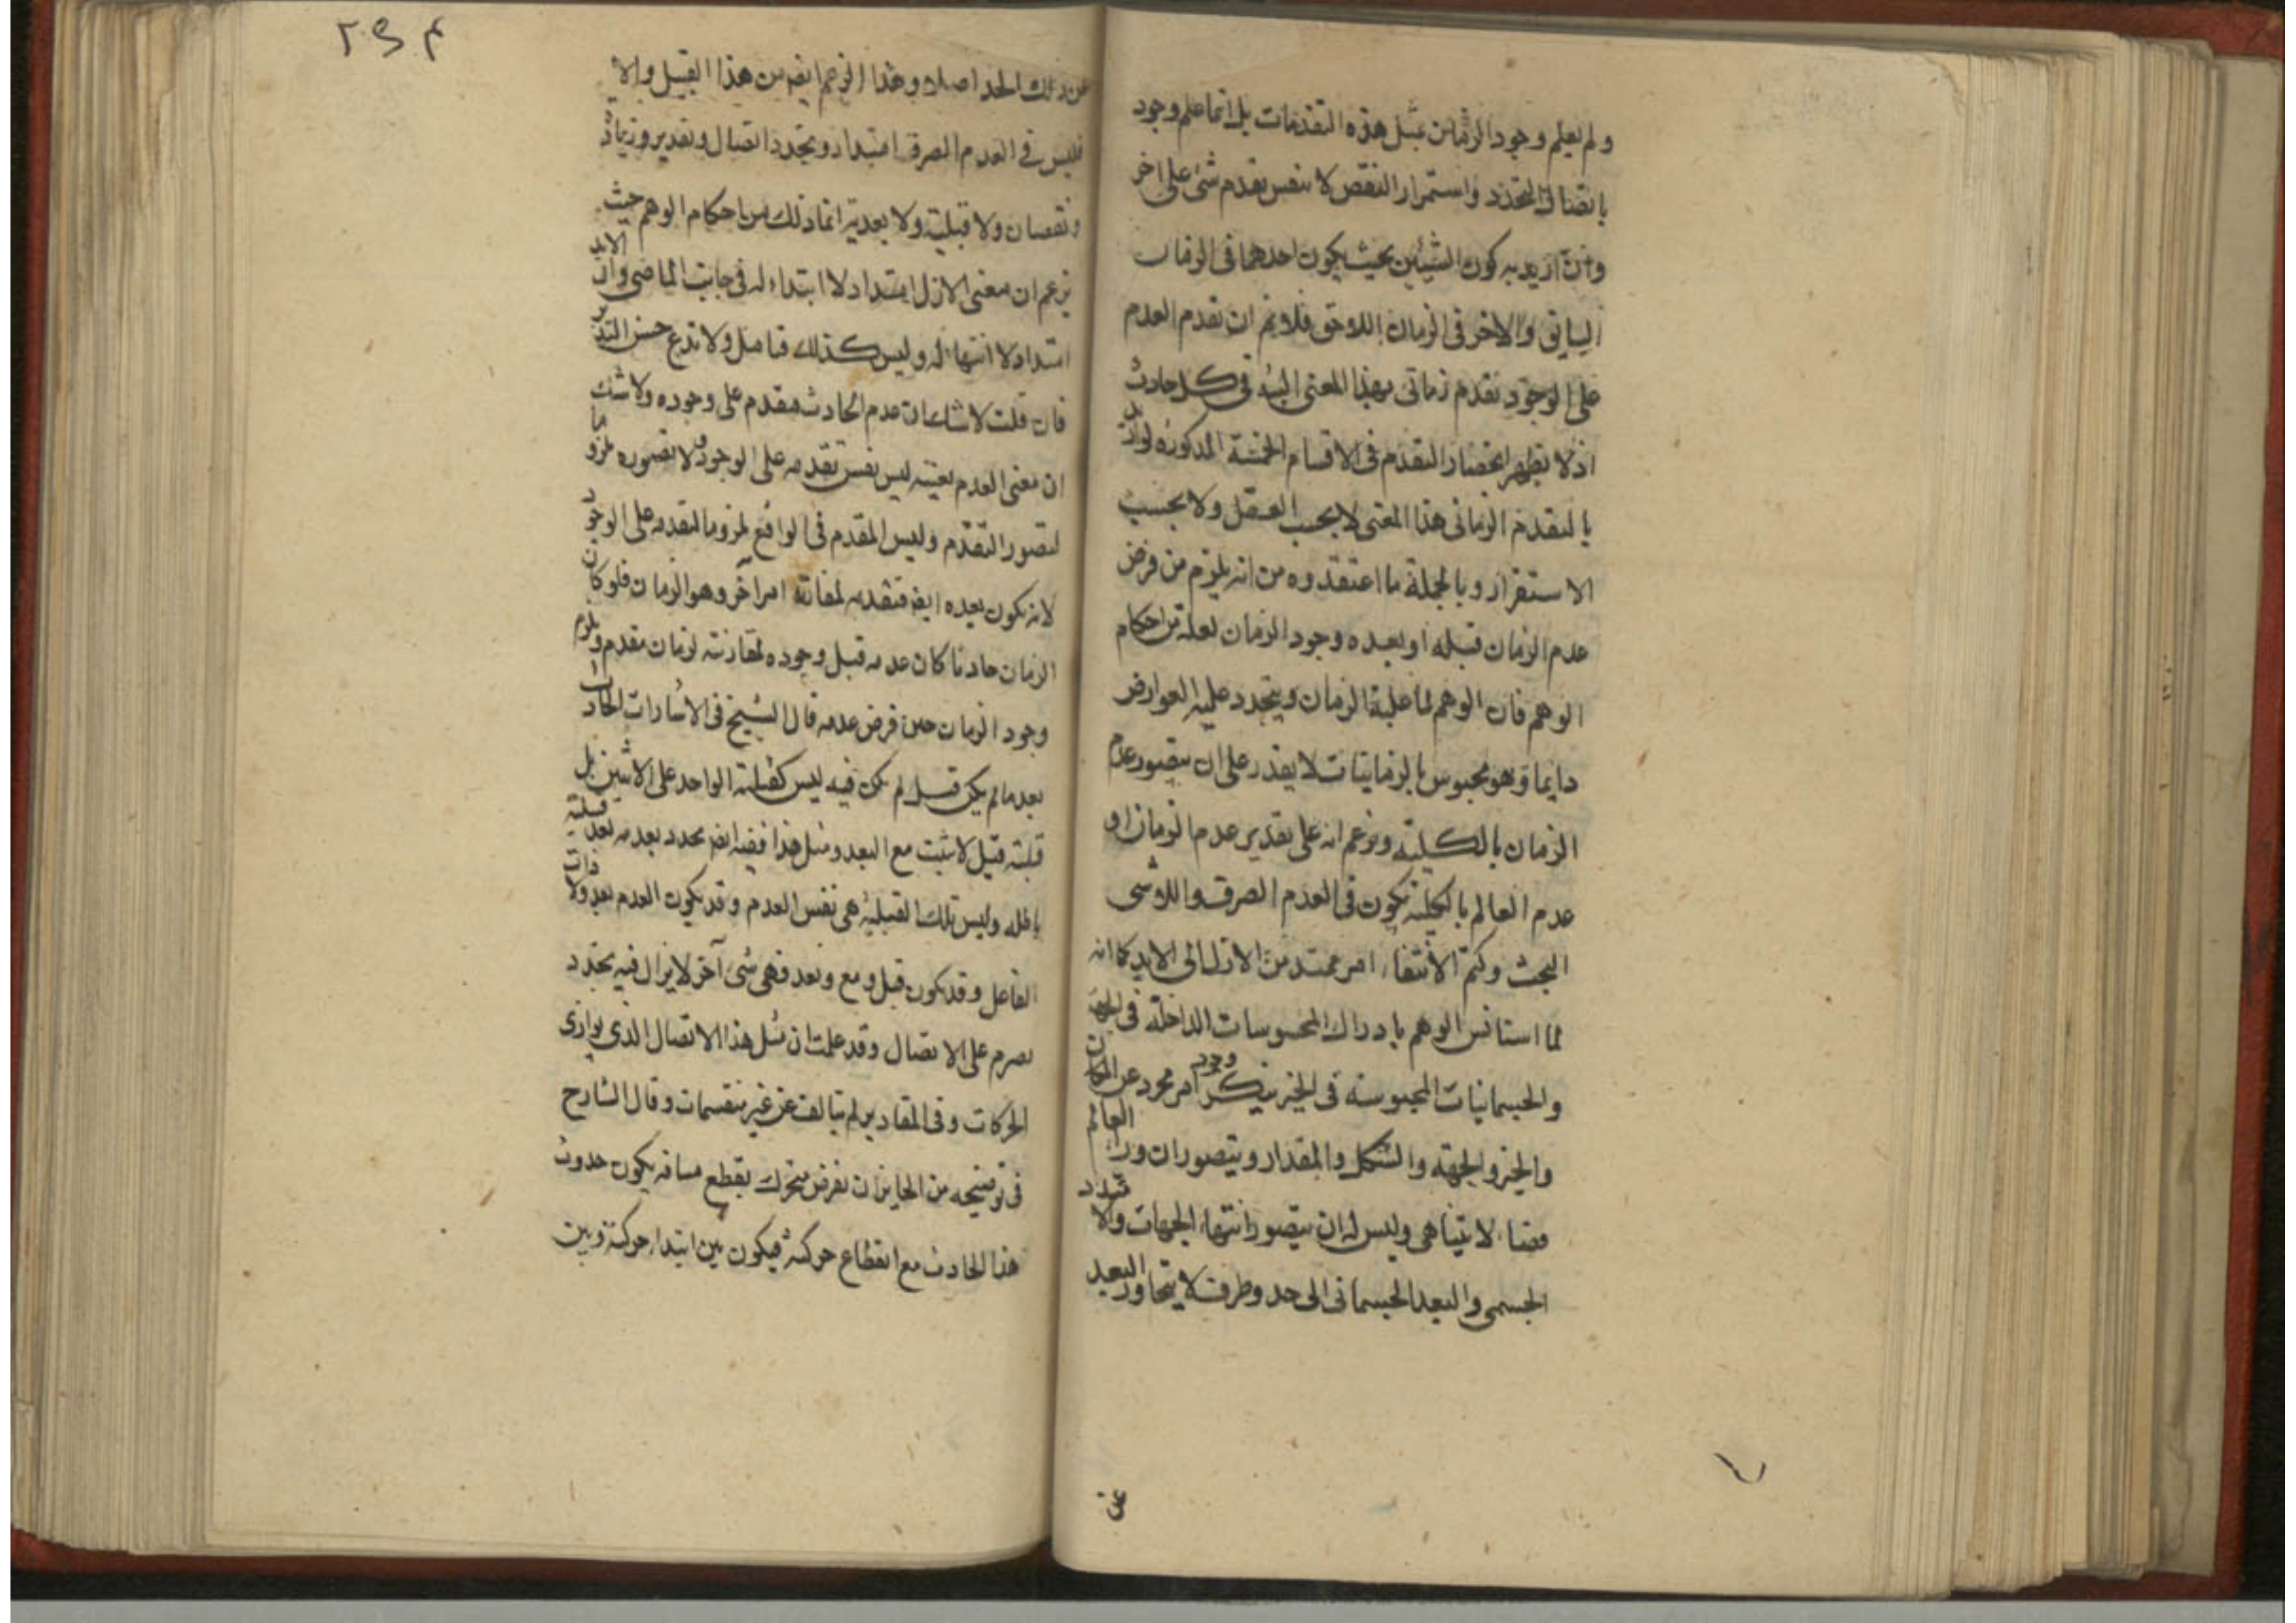 ولم يعلم وجود الزمان بمثل هذه التقدمات بل انما علم وجود
باتصال التجدد واستمرار النقص لا بنفس تقدم شئ على اخر
وان اريد به كون الشيئين بحيث يكون احدهما فى الزمان
السابق والاخر فى الزمان اللاحق فلا نم ان تقدم العدم
على الوجود تقدم زمانى بهذا المعنى البتة فى كل حادث
اذ لا يظهر انحصار التقدم فى الاقسام الخمسة المذكورة لو اريد
بالتقدم الزمانى هذا المعنى لا بحسب العقل ولا بحسب
الاستقرار وبالجملة ما اعتقدوه من انه يلزم من فرض
عدم الزمان قبله او بعده وجود الزمان لعله من احكام
الوهم فان الوهم لما غلبه الزمان ويتجدد عليه العوارض
دايما وهو محبوس بالزمانيات لا يقدر على ان يتصور عدم
الزمان بالكلية ويزعم انه على تقدير عدم الزمان او
عدم العالم بالكلية يكون فى العدم الصرف واللاشى
البحث وكتم الانتفاء امر ممتد من الازل الى الابد كما انه
لما استانس الوهم بادراك المحسوسات الداخلة فى الجهة
والجسمانيات المحبوسة فى الحيز ينكر وجود امر مجرد عن المكان
والحيز والجهة والشكل والمقدار ويتصور ان وراء العالم
فضاء لا يتناهى وليس له ان يتصور انتهاء الجهات والامتداد
الجسمى والبعد الجسمانى الى حد وطرف لا يتجاوز البعد
عن
٢٩٤
عن ذلك الحد اصلا وهذا الزعم ايضا من هذا القبيل والا
فليس فى العدم الصرف امتداد وتجدد اتصال وتقدير وزيادة
ونقصان ولا قبلية ولا بعدية انما ذلك من احكام الوهم حيث
يزعم ان معنى الازل امتداد لا ابتداء له فى جانب الماضى وان الابد
امتداد لا انتهاء له وليس كذلك فتامل ولا تدع حسن التدبر
فان قلت لا شك ان عدم الحادث مقدم على وجوده ولا شك
ان معنى العدم بعينه ليس نفس تقدمه على الوجود ولا تصوره ملزوما
لتصور التقدم وليس المقدم فى الواقع ملزوما لتقدمه على الوجود
لانه يكون بعده ايضا فتقدمه لمقارنة امر اخر وهو الزمان فلو كان
الزمان حادثا كان عدمه قبل وجوده لمقارنته لزمان مقدم ويلزم
وجود الزمان حين فرض عدمه قال الشيخ فى الاشارات الحادث
بعد ما لم يكن قبل لم يكن فيه ليس كقبلية الواحد على الاثنين بل
قبلية قبل لا يثبت مع البعد ومثل هذا ففيه ايضا تجدد بعدية بعد قبلية
باطلة وليس تلك القبلية هى نفس العدم وقد يكون العدم بعد ولا ذات
الفاعل وقد يكون قبل ومع وبعد فهى شئ آخر لا يزال فيه تجدد
تصرم على الاتصال وقد علمت ان مثل هذا الاتصال الذى يوازى
الحركات وفى المقادير لم يتالف عن غير منقسمات وقال الشارح
فى توضيحه من الجايز ان نفرض متحرك يقطع مسافة يكون حدوث
هذا الحادث مع انقطاع حركته فيكون بين ابتداء حركته وبين